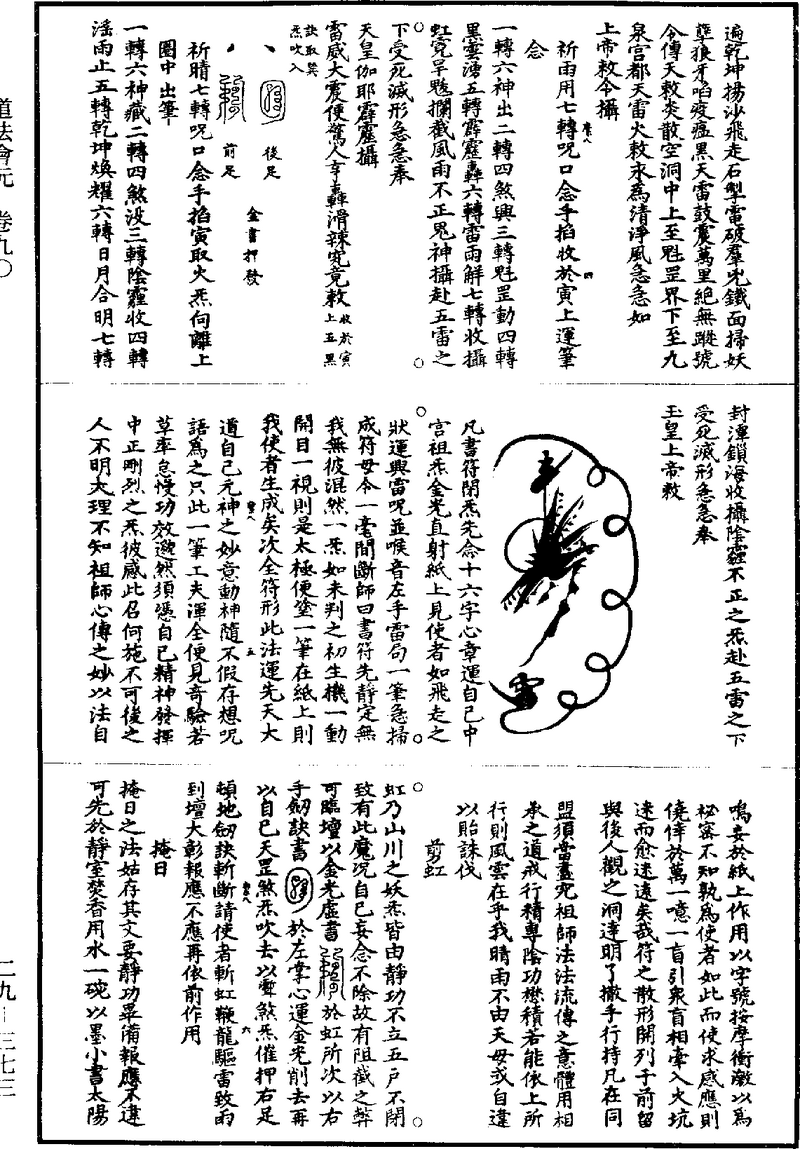 遍乾坤揚沙飛走石掣雷破群兇鐵面掃妖
孽狼牙啗疫瘟黑天雷鼓震萬里絕無蹤號
令傳天敕炎散空洞中上至魁罡界下至九
泉宮都天雷火敕永為清淨風急急如
上帝敕令攝
祈雨用七轉呪口念手掐收於寅上運筆
念
一轉六神出二轉四煞興三轉魁罡動四轉
黑雲湧五轉霹靂轟六轉雷雨解七轉收攝
虹霓旱魃攔截風雨不正鬼神攝赴五雷之
下受死滅形急急奉
天皇伽耶霹靂攝
雷威大震便驚人亨轟滑辣究竟敕收於寅上五黑
訣取巽炁吹入
後足
前足
金書押發
祈晴七轉呪口念手掐寅取火炁向離上
圈中出筆
一轉六神藏二轉四煞沒三轉陰霾收四轉
滛雨止五轉乾坤煥耀六轉日月合明七轉
封渾鎖海收攝陰霾不正之炁赴五雷之下
受死滅形急急奉
玉皇上帝敕
雷
凡書符閉炁先念十六字心章運自己中
宮祖炁金光直射紙上見使者如飛走之
狀運興雷呪並喉音左手雷局一筆急掃
成符毋令一毫間斷師曰書符先靜定無
我無彼混然一炁如未判之初生機一動
開目一視則是太極便塗一筆在紙上則
我使者生成矣次全符形此法運先天大
道自己元神之妙意動神隨不假存想呪
語為之只此一筆工夫渾全便見奇驗若
草率怠慢功效邈然須憑自己精神發揮
中正剛烈之炁彼感此召何施不可後之
人不明大理不知祖師心傳之妙以法自
鳴妄於紙上作用以字號按摩衝激以為
秘密不知孰為使者如此而使求感應則
僥倖於萬一噫一盲引眾盲相牽入火坑
迷而愈迷遠矣哉符之散形開列于前留
與後人觀之洞達明了撒手行持凡在同
盟須當盡究祖師法法流傳之意體用相
承之道戒行精專陰功懋積若能依上所
行則風雲在乎我晴雨不由天毋或自違
以貽誅伐
剪虹
虹乃山川之妖炁皆由靜功不立五戶不閉
致有此魔況自己妄念不除故有阻截之弊
可臨壇以金光虛書於虹所次以右
手劒訣書於左掌心運金光削去再
以自己天罡煞炁吹去以雷煞炁催押右足
頓地劒訣斬斷請使者斬虹鞭龍驅雷致雨
到壇大彰報應不應再依前作用
掩日
掩日之法姑存其文要靜功畢備報應不違
可先於靜室焚香用水一碗以墨小書太陽
道法會元 卷九〇
二九—三七三